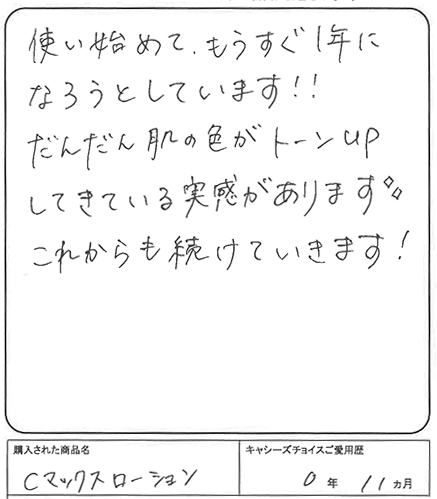 使い始めて、もうすぐ1年に
なろうとしています!!
だんだん肌の色がトーンup
してきている実感があります
これからも続けていきます!
購入された商品名
キャシーズチョイスご愛用歴
Cマックスローション
0年 11ヵ月